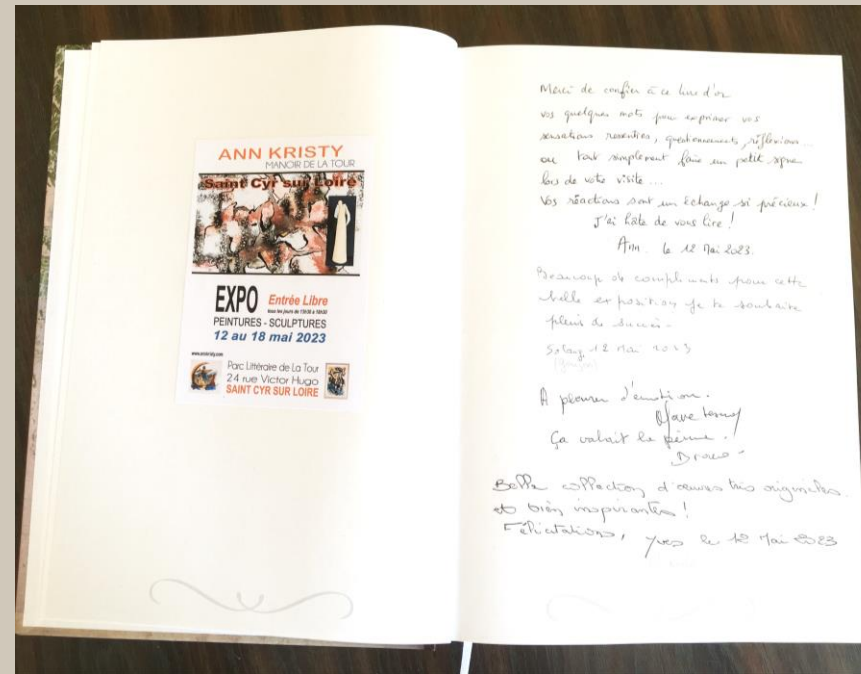 ANN KRISTY
MANOIR DE LA TOUR
Saint Cyr sur Loire
EXPO
Entrée Libre
tous les jours de
PEINTURES - SCULPTURES
12 au 18 mai 2023
www.annkristy.com
Parc Littéraire de La Tour
24 rue Victor Hugo
SAINT CYR SUR LOIRE
Merci de confier à ce livre d'or
vos quelques mots pour exprimer vos
sensations ressenties, questionnements, réflexions...
ou tout simplement faire un petit signe
lors de votre visite...
Vos réactions sont un échange si précieux !
J'ai hâte de vous lire !
Ann. le 12 Mai 2023.
Beaucoup de compliments pour cette
belle exposition je te souhaite
pleins de succès.
12 Mai 2023
A pleurer d'émotion.
Ça valait la peine !
Bruno
Belle collection d'œuvres très originales
et bien inspirantes !
Félicitations, Yves le 12 Mai 2023